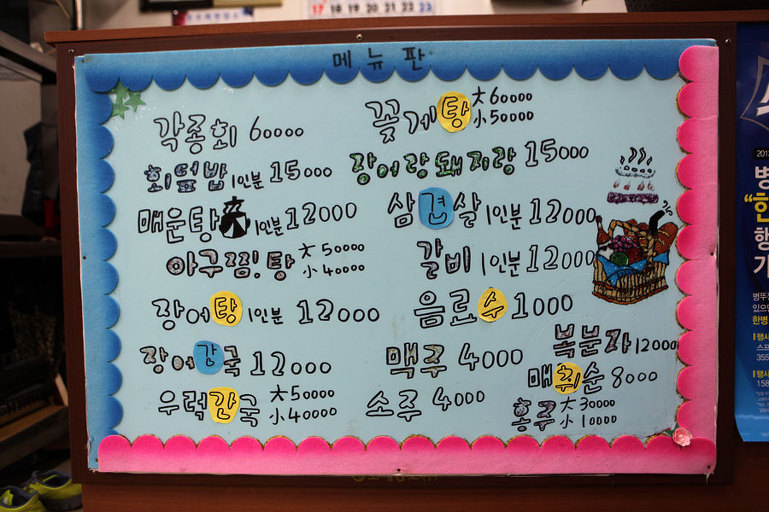 17 18 19 20 21 22 23
메뉴판
각종회 60000
회덮밥 1인분 15000
매운탕 1인분 12000
아구찜!탕 大 50000
小 40000
장어탕 1인분 12000
장어간국 12000
우럭간국 大 50000
小 40000
꽃게탕 大 60000
小 50000
장어랑돼지랑 15000
삼겹살 1인분 12000
갈비 1인분 12000
음료수 1000
맥주 4000
소주 4000
복분자 12000
매취순 8000
홍주 大 30000
小 10000